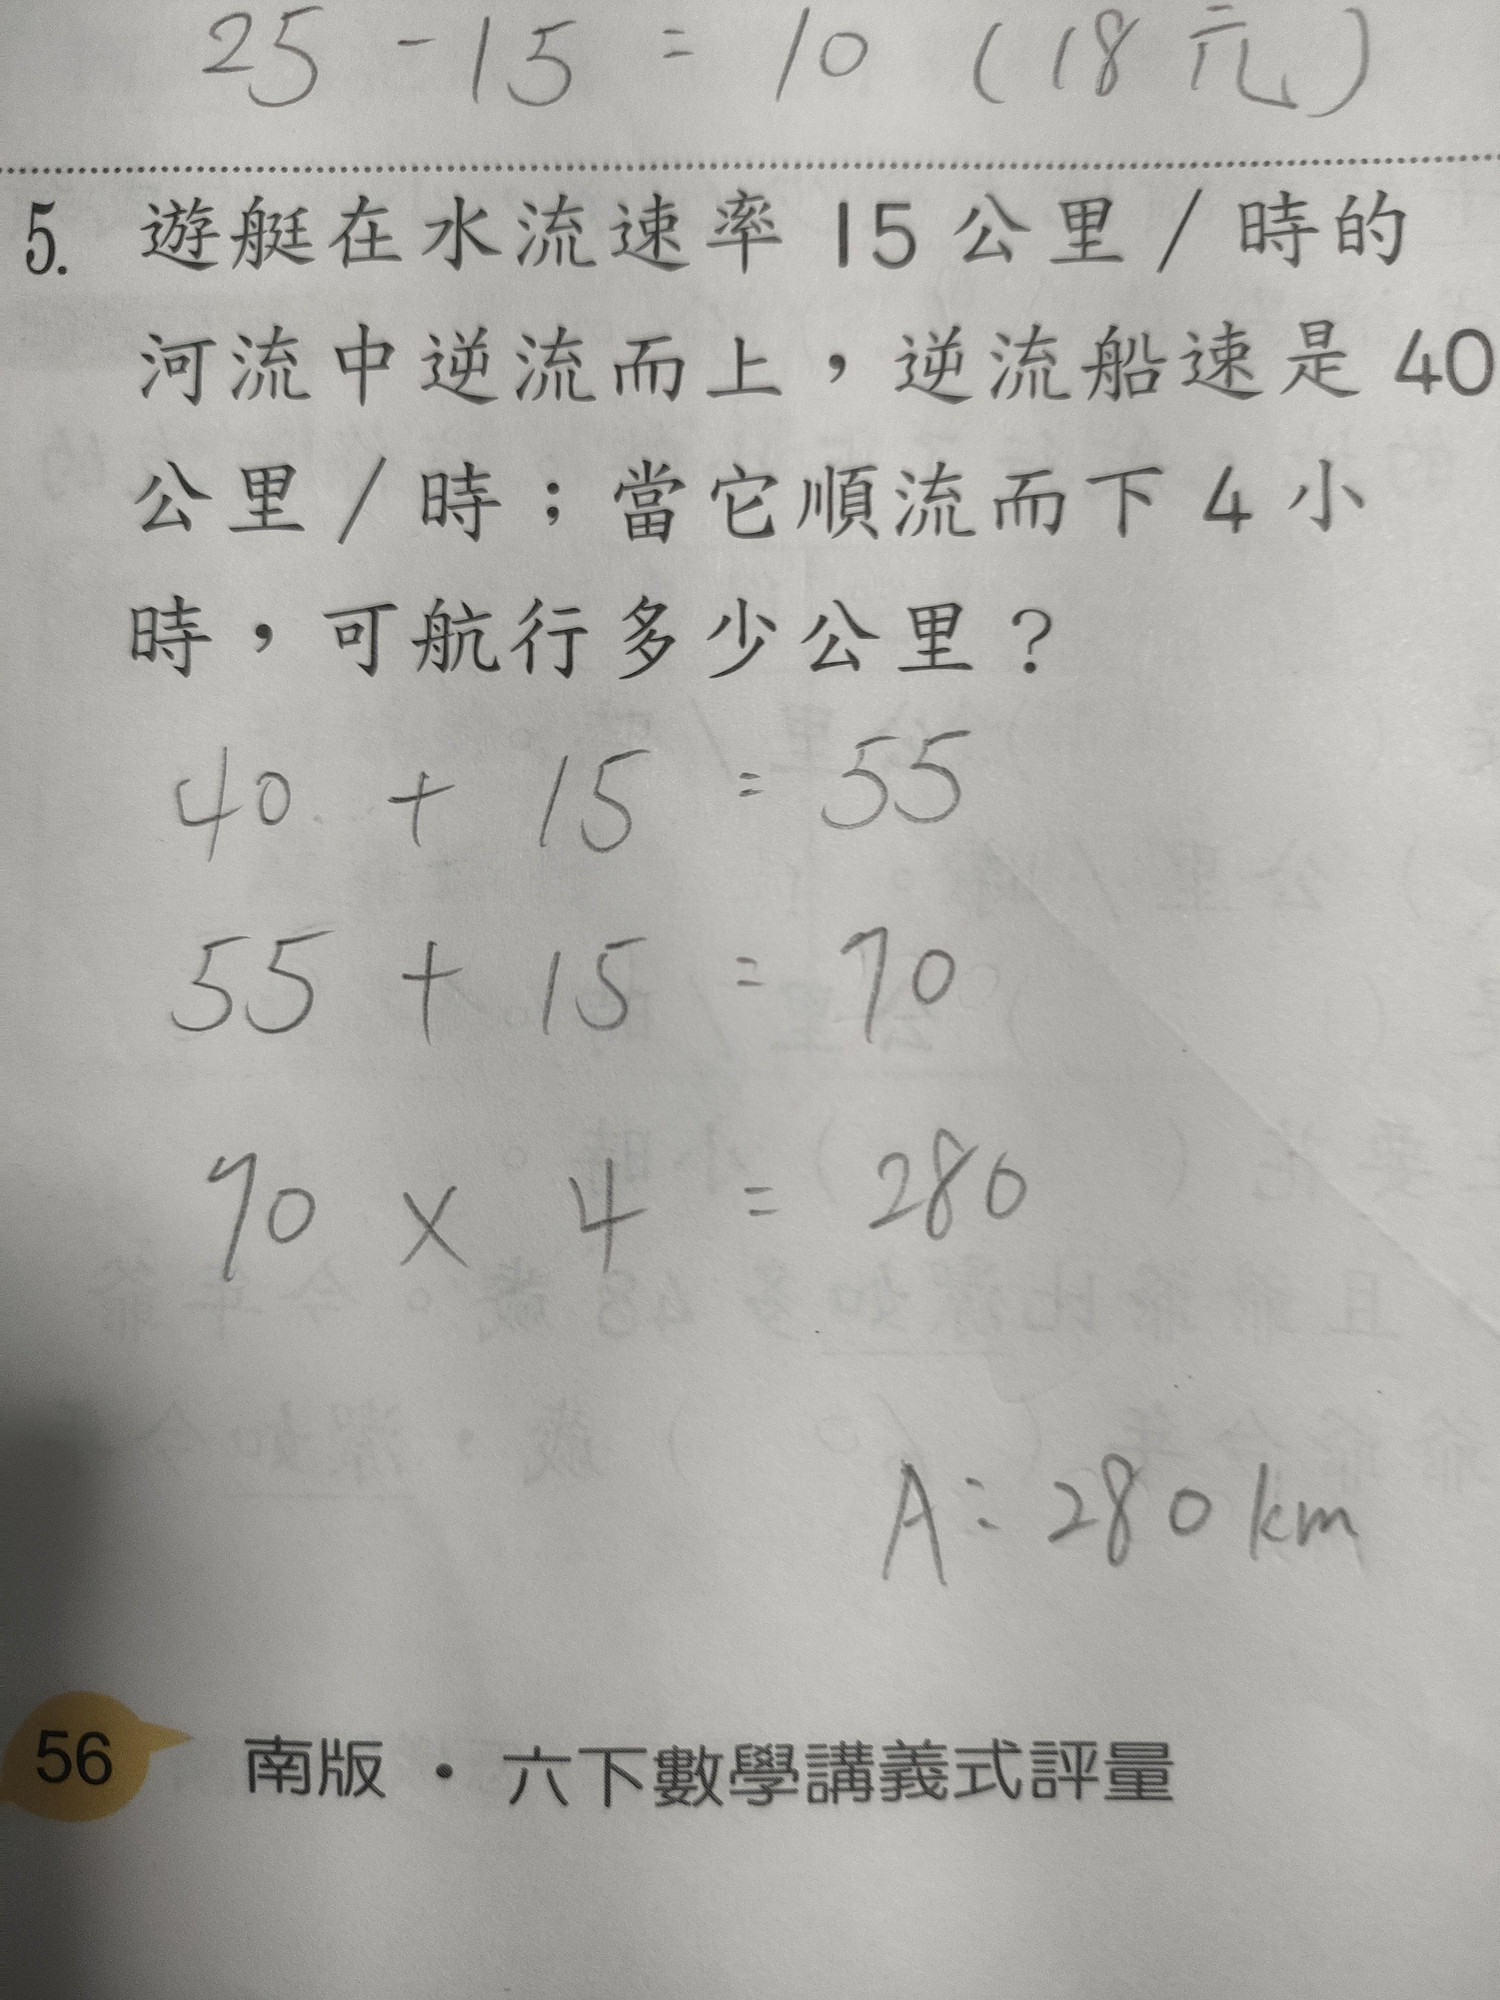 25 - 15 = 10 (18元)
5. 遊艇在水流速率 15 公里／時的
河流中逆流而上，逆流船速是 40
公里／時；當它順流而下 4 小
時，可航行多少公里？
40 + 15 = 55
55 + 15 = 70
70 × 4 = 280
A: 280 km
56 南版・六下數學講義式評量